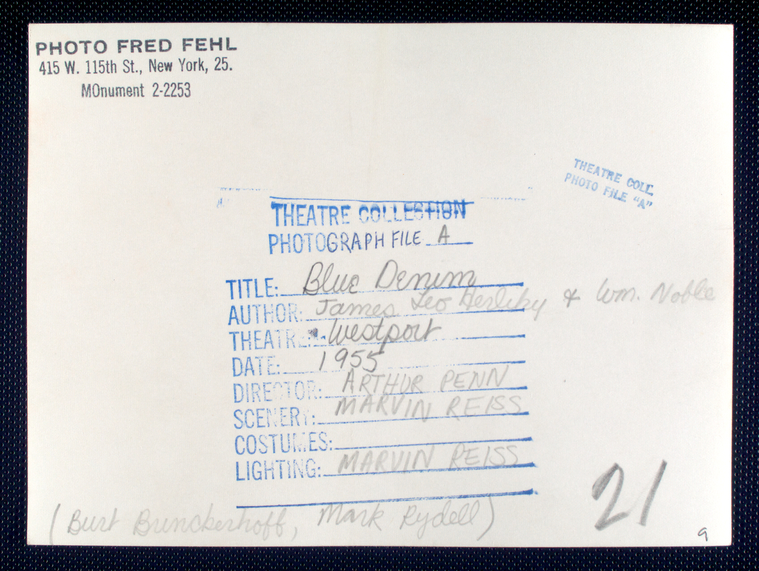 PHOTO FRED FEHL
415 W. 115th St., New York, 25.
MOnument 2-2253
THEATRE COLL.
PHOTO FILE "A"
THEATRE COLLECTION
PHOTOGRAPH FILE A
TITLE: Blue Denim
AUTHOR: James Leo Herlihy & Wm. Noble
THEATRE: Westport
DATE: 1955
DIRECTOR: ARTHUR PENN
SCENERY: MARVIN REISS
COSTUMES:
LIGHTING: MARVIN REISS
(Burt Brinckerhoff, Mark Rydell)
21
9